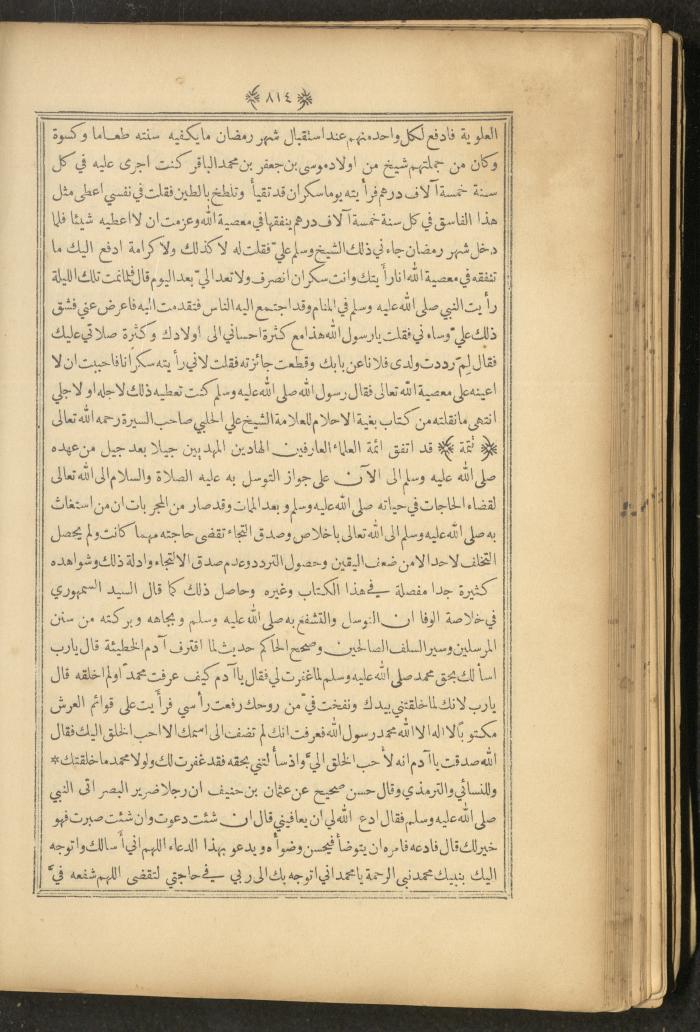 ٨١٤
العلوية فادفع لكل واحد منهم عند استقبال شهر رمضان ما يكفيه سنته طعاما وكسوة
وكان من جملتهم شيخ من اولاد موسى بن جعفر بن محمد الباقر كنت اجرى عليه في كل
سنة خمسة آلاف درهم فرأيته يوما سكران قد تقيأ وتلطخ بالطين فقلت في نفسي اعطى مثل
هذا الفاسق في كل سنة خمسة آلاف درهم ينفقها في معصية الله وعزمت ان لا اعطيه شيئا فلما
دخل شهر رمضان جاءني ذلك الشيخ وسلم عليّ فقلت له لا كذلك ولا كرامة ادفع اليك ما
تنفقه في معصية الله انا رأيتك وانت سكران انصرف ولا تعد اليّ بعد اليوم قال فلما نمت تلك الليلة
رأيت النبي صلى الله عليه وسلم في المنام وقد اجتمع اليه الناس فتقدمت اليه فاعرض عني فشق
ذلك عليّ وساءني فقلت يا رسول الله هذا مع كثرة احساني الى اولادك وكثرة صلاتي عليك
فقال لِمَ رددت ولدى فلانا عن بابك وقطعت جائزته فقلت لاني رأيته سكرانا فاحببت ان لا
اعينه على معصية الله تعالى فقال رسول الله صلى الله عليه وسلم كنت تعطيه ذلك لاجله او لاجلي
انتهى ما نقلته من كتاب بغية الاحلام للعلامة الشيخ علي الحلبي صاحب السيرة رحمه الله تعالى
﴿ تتمة ﴾ قد اتفق ائمة العلماء العارفين الهادين المهديين جيلا بعد جيل من عهده
صلى الله عليه وسلم الى الآن على جواز التوسل به عليه الصلاة والسلام الى الله تعالى
لقضاء الحاجات في حياته صلى الله عليه وسلم وبعد الممات وقد صار من المجربات ان من استغاث
به صلى الله عليه وسلم الى الله تعالى باخلاص وصدق التجاء تقضى حاجته مهما كانت ولم يحصل
التخلف لاحد الا من ضعف اليقين وحصول التردد وعدم صدق الالتجاء وادلة ذلك وشواهده
كثيرة جدا مفصلة في هذا الكتاب وغيره وحاصل ذلك كما قال السيد السمهوري
في خلاصة الوفا ان التوسل والتشفع به صلى الله عليه وسلم وبجاهه وبركته من سنن
المرسلين وسير السلف الصالحين وصحح الحاكم حديث لما اقترف آدم الخطيئة قال يارب
اسألك بحق محمد صلى الله عليه وسلم لما غفرت لي فقال يا آدم كيف عرفت محمدًا ولم اخلقه قال
يارب لانك لما خلقتني بيدك ونفخت فيّ من روحك رفعت رأسي فرأيت على قوائم العرش
مكتوبًا لا اله الا الله محمد رسول الله فعرفت انك لم تضف الى اسمك الا احب الخلق اليك فقال
الله صدقت يا آدم انه لأحب الخلق اليّ واذ سألتني بحقه فقد غفرت لك ولولا محمد ما خلقتك *
وللنسائي والترمذي وقال حسن صحيح عن عثمان بن حنيف ان رجلا ضرير البصر اتى النبي
صلى الله عليه وسلم فقال ادع الله لي ان يعافيني قال ان شئت دعوت وان شئت صبرت فهو
خير لك قال فادعه فامره ان يتوضأ فيحسن وضوأه ويدعو بهذا الدعاء اللهم اني أسالك واتوجه
اليك بنبيك محمد نبي الرحمة يا محمد اني اتوجه بك الى ربي في حاجتي لتقضى اللهم شفعه فيَّ